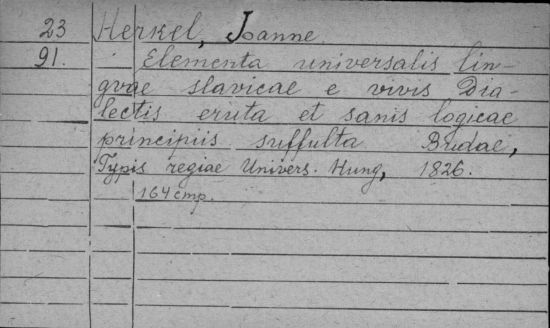 23 Herkel, Joanne
91. Elementa universalis lin-
gvae slavicae e vivis Dia-
lectis eruta et sanis logicae
principiis suffulta Budae,
Typis regiae Univers. Hung, 1826.
164 стр.